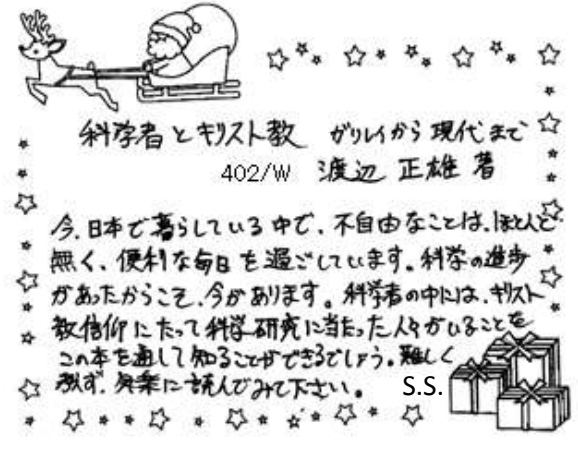 科学者とキリスト教 ガリレイから現代まで
402/W 渡辺 正雄 著
今、日本で暮らしている中で、不自由なことは、ほとんど
無く、便利な毎日を過ごしています。科学の進歩
があったからこそ、今があります。科学者の中には、キリスト
教信仰にたって科学研究に当たった人々がいることを
この本を通して知ることができるでしょう。難しく
考えず、気楽に読んでみて下さい。 S.S.